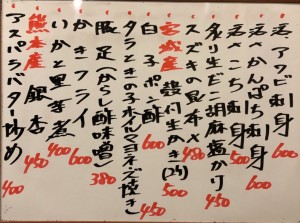 活アワビ刺身 600
活かんぱち刺身 600
活さごち刺身 500
炙り生だこ胡麻塩がけ 450
スズキの昆布〆 480
宮城産 殻付生かき(2ヶ) 500
白子ポン酢 600
タラときの子ホイルマヨネーズ焼き 450
豚足(からし酢味噌) 380
かきフライ 600
いかと里芋煮 400
熊本産 銀杏 450
アスパラバター炒め 400